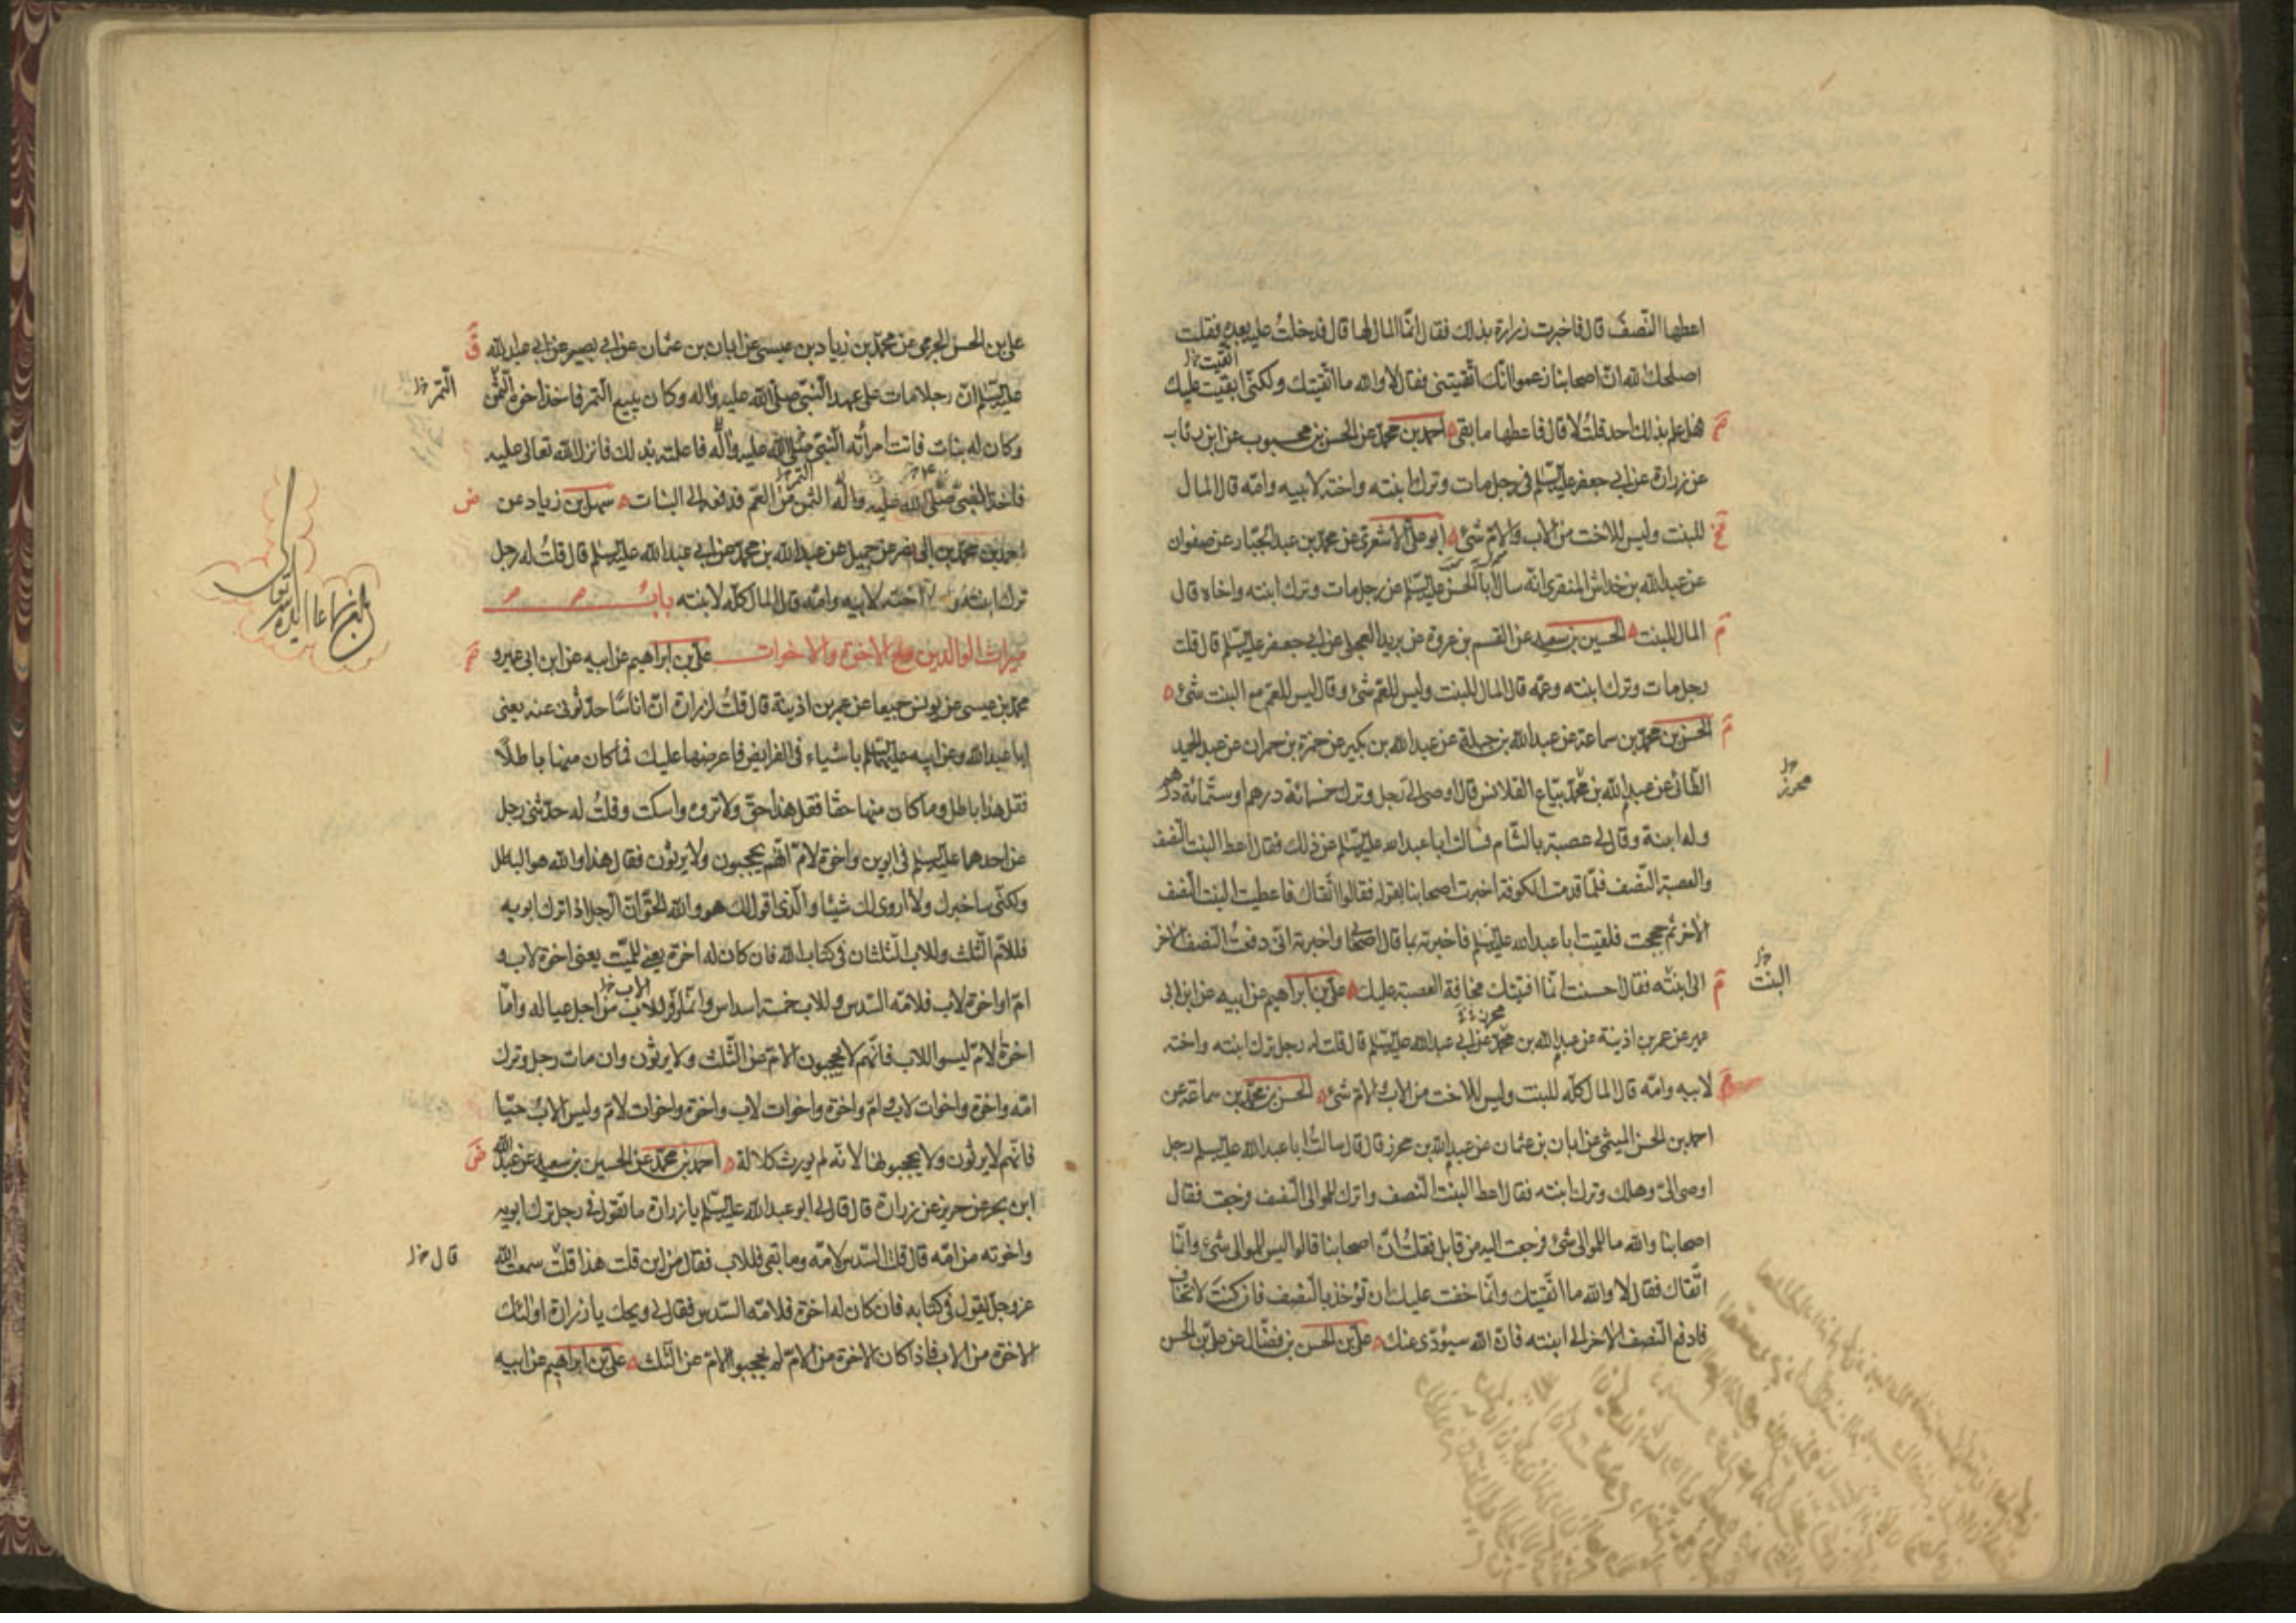 اعطها النّصف قال فاخبرت زرارة بذلك فقال انّما المال لها قال فدخلتُ عليه بعد فقلت
اتّقيت خ‌ل
اصلحك الله انّ اصحابنا زعموا انّك اتّقيتنى فقال لا والله ما اتّقيتك ولكنّى ابقيت عليك
هل علم بذلك احد قلتُ لا قال فاعطها ما بقى احمد بن محمّد عن الحسن بن محبوب عن ابن رئاب
عن زرارة عن ابى جعفر عليه السّلم فى رجل مات وترك ابنته واخته لابيه وامّه قال المال
للبنت وليس للاخت من الاب والامّ شئ ابو علىّ الاشعرى عن محمّد بن عبد الجبّار عن صفوان
عن عبد الله بن خداش المنقرى انّه سال ابا الحسن عليه السّلم عن رجل مات وترك ابنته واخاه قال
المال للبنت الحسين بن سعيد عن القسم بن عروة عن بريد العجلى عن ابى جعفر عليه السّلم قال قلت
رجل مات وترك ابنته وعمّه قال المال للبنت وليس للعمّ شئ وقال ليس للعمّ مع البنت شئ
الحسن بن محمّد بن سماعة عن عبد الله بن جبلة عن عبد الله بن بكير عن حمزة بن حمران عن عبد الحميد
محرز خ‌ل
الطّائى عن عبد الله بن محمّد بيّاع القلانس قال اوصى الىّ رجل وترك خمسمائة درهم او ستّمائة درهم
وله ابنة وقال لى عصبة بالشّام فسالت ابا عبد الله عليه السّلم عن ذلك فقال اعط البنت النّصف
والعصبة النّصف فلمّا قدمت الكوفة اخبرت اصحابنا بقوله فقالوا اتّقاك فاعطيت البنت النّصف
الاخر ثم حججت فلقيت ابا عبد الله عليه السّلم فاخبرته بما قال اصحابنا واخبرته انّى دفعتُ النّصف الاخر
البنت خ‌ل
الى ابنته فقال احسنت انّما افتيتك مخافة العصبة عليك علىّ بن ابراهيم عن ابيه عن ابن ابى
محرز
عمير عن عمر بن اذينة عن عبد الله بن محمّد عن ابى عبد الله عليه السّلم قال قلت له رجل ترك ابنته واخته
لابيه وامّه قال المال كلّه للبنت وليس للاخت من الاب والامّ شئ الحسن بن محمّد بن سماعة عن
احمد بن الحسن الميثمى عن ابان بن عثمان عن عبد الله بن محرز قال قال سالتُ ابا عبد الله عليه السّلم رجل
اوصى الىّ وهلك وترك ابنته فقال اعط البنت النّصف واترك للموالى النّصف فرجعت فقال
اصحابنا والله ما للموالى شئ فرجعت اليه من قابل فقلتُ انّ اصحابنا قالوا ليس للموالى شئ وانّما
اتّقاك فقال لا والله ما اتّقيتك وانّما خفت عليك ان تؤخذ بالنّصف فان كنت لا تخاف
فادفع النّصف الاخر الى ابنته فانّ الله سيؤدّى عنك علىّ بن الحسن بن فضّال عن علىّ بن الحسن
علىّ بن الحسن الجرمى عن محمّد بن زياد بن عيسى عن ابان بن عثمان عن ابى بصير عن ابى عبد الله
التّمر خ‌ل
عليه السّلم انّ رجلا مات على عهد النّبىّ صلّى الله عليه واله وكان يبيع التّمر فاخذ اخوه الثّمن
وكان له بنات فاتت امرأته النّبىّ صلّى الله عليه واله فاعلمته بذلك فانزل الله تعالى عليه
التّمر خ‌ل
فاخذ النّبىّ صلّى الله عليه واله الثّمن من العمّ فدفعه الى البنات سهل بن زياد عن
احمد بن محمّد بن ابى نصر عن جميل عن عبد الله بن محمّد عن ابى عبد الله عليه السّلم قال قلتُ له رجل
ترك ابنته واخته لابيه وامّه قال المال كلّه لابنته بابُ
ميراث الوالدين مع الاخوة والاخوات علىّ بن ابراهيم عن ابيه عن ابن ابى عمير و
محمّد بن عيسى عن يونس جميعا عن عمر بن اذينة قال قلتُ لزرارة انّ اناسًا حدّثونى عنه يعنى
ابا عبد الله وعن ابيه عليهما السّلم باشياء فى الفرايض فاعرضها عليك فما كان منها باطلًا
فقل هذا باطل وما كان منها حقّا فقل هذا حقّ ولا تروه واسكت وقلتُ له حدّثنى رجل
عن احدهما عليه السّلم فى ابوين واخوة لامّ انّهم يحجبون ولا يرثون فقال هذا والله هو الباطل
ولكنّى ساخبرك ولا اروى لك شيئا والّذى اقول لك هو والله الحقّ انّ الرّجل اذا ترك ابويه
فللامّ الثّلث وللاب الثّلثان فى كتاب الله فان كان له اخوة يعنى للميّت يعنى اخوة لاب و
الاب خ‌ل
امّ او اخوة لاب فلامّه السّدس وللاب خمسة اسداس وانّما وفّر للاب من اجل عياله وامّا
اخوة لامّ ليسوا للاب فانّهم لا يحجبون الامّ عن الثّلث ولا يرثون وان مات رجل وترك
امّه واخوة واخوات لاب وامّ واخوة واخوات لاب واخوة واخوات لامّ وليس الابُ حيّا
فانّهم لا يرثون ولا يحجبونها لانّه لم يورث كلالة احمد بن محمّد عن الحسين بن سعيد عن عبد الله
ابن بحر عن حريز عن زرارة قال قال لى ابو عبد الله عليه السّلم يا زرارة ما تقول فى رجل ترك ابويه
قال خ‌ل
واخوته من امّه قال قلت السّدس لامّه وما بقى فللاب فقال من اين قلت هذا قلت سمعت الله
عز وجلّ يقول فى كتابه فان كان له اخوة فلامّه السّدس فقال لى ويحك يا زرارة اولئك
الاخوة من الاب فاذا كان الاخوة من الامّ لم يحجبوا الامّ عن الثّلث علىّ بن ابراهيم عن ابيه